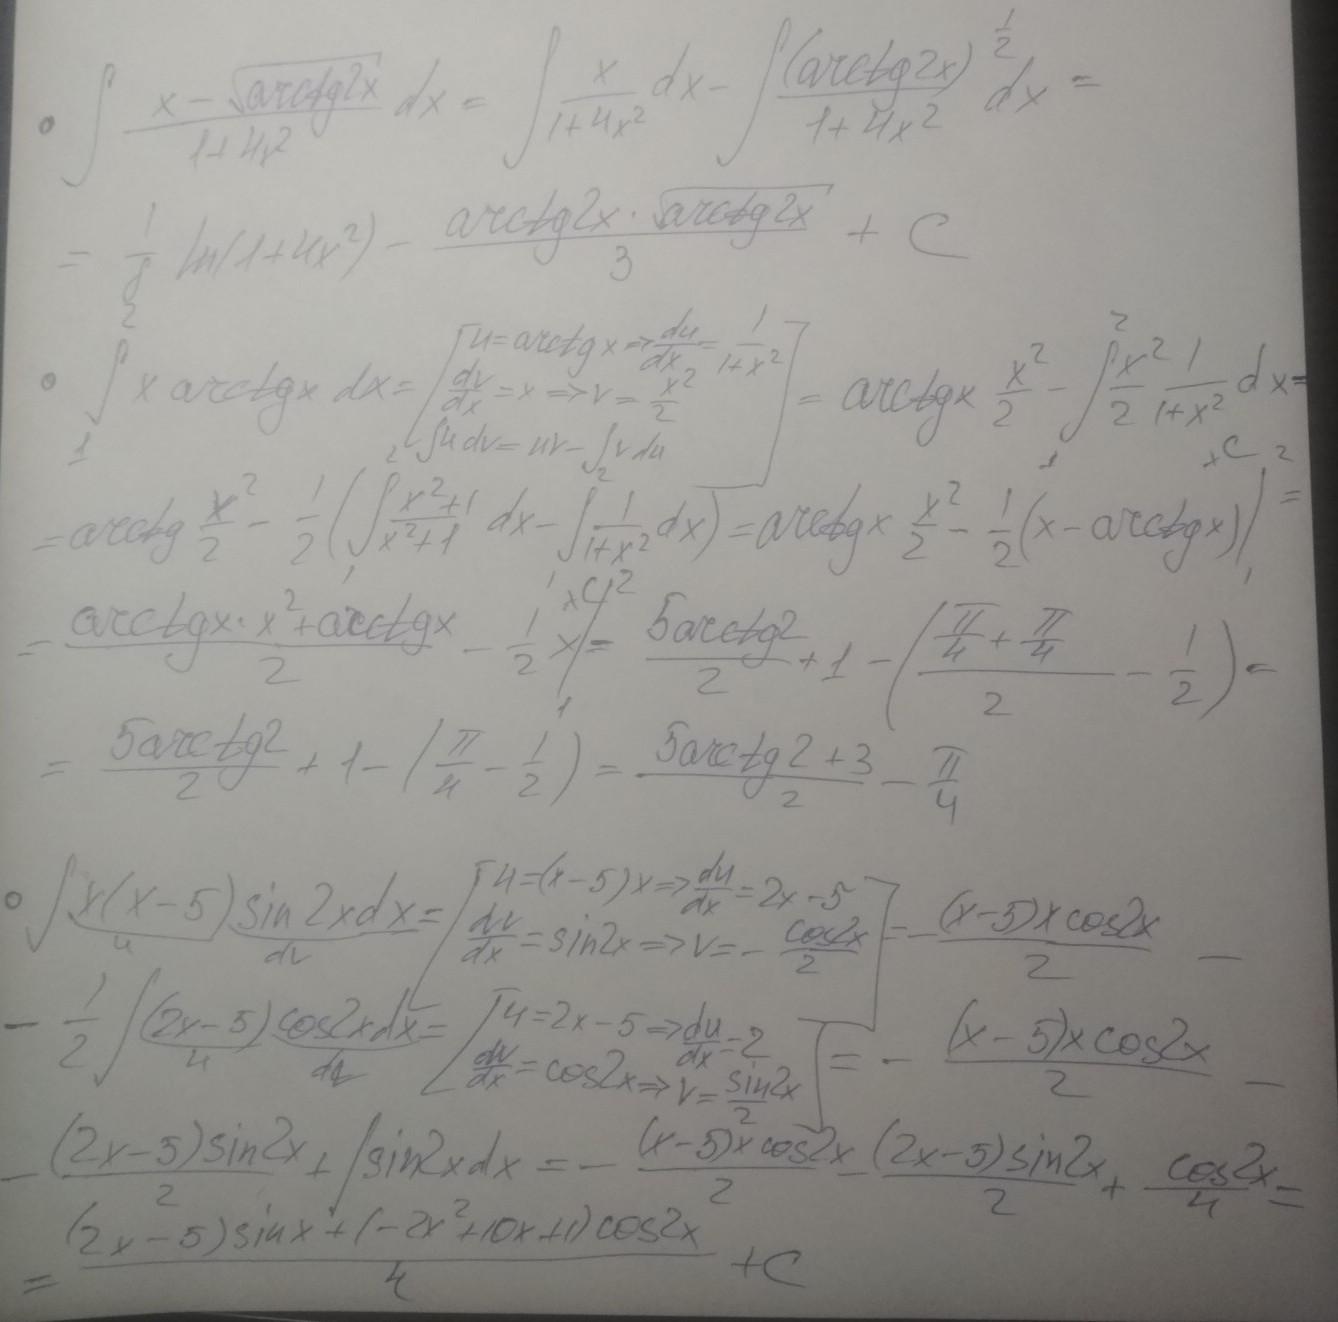 • ∫ (x − √(arctg2x))/(1+4x²) dx = ∫ x/(1+4x²) dx − ∫ (arctg2x)^(1/2)/(1+4x²) dx =
= 1/8 ln(1+4x²) − (arctg2x · √(arctg2x))/3 + C
• ∫₁² x arctgx dx = [u = arctgx ⇒ du/dx = 1/(1+x²); dv/dx = x ⇒ v = x²/2; ∫u dv = uv − ∫v du] = arctgx x²/2 − ∫₁² x²/2 1/(1+x²) dx =
= arctg x²/2 − 1/2 (∫₁² (x²+1)/(x²+1) dx − ∫₁² 1/(1+x²) dx) = arctgx x²/2 − 1/2 (x − arctgx) |₁² =
= (arctgx · x² + arctgx)/2 − 1/2 x |₁² = 5arctg2/2 + 1 − ((π/4 + π/4)/2 − 1/2) =
= 5arctg2/2 + 1 − (π/4 − 1/2) = (5arctg2 + 3)/2 − π/4
• ∫ x(x−5) sin2x dx = [u = (x−5)x ⇒ du/dx = 2x−5; dv/dx = sin2x ⇒ v = − cos2x/2] = − (x−5)x cos2x/2 −
− 1/2 ∫ (2x−5) cos2x dx = [u = 2x−5 ⇒ du/dx = 2; dv/dx = cos2x ⇒ v = sin2x/2] = − (x−5)x cos2x/2 −
− (2x−5)sin2x/2 + ∫ sin2x dx = − (x−5)x cos2x/2 − (2x−5)sin2x/2 + cos2x/4 =
= ((2x−5)sinx + (−2x²+10x+1)cos2x)/4 + C